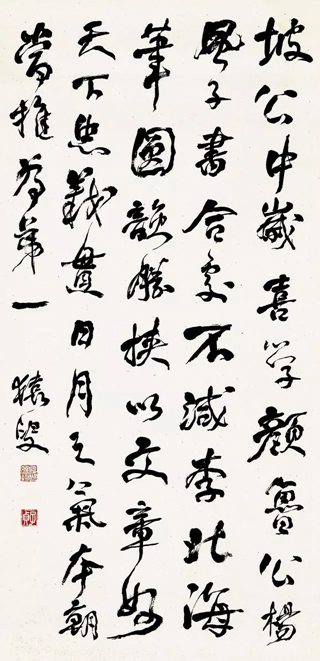 坡公中歲喜學顏魯公楊
風子書合處不減李北海
筆圓韻勝挾以文章妙
天下忠義貫日月之氣本朝
當推為第一
猿叟